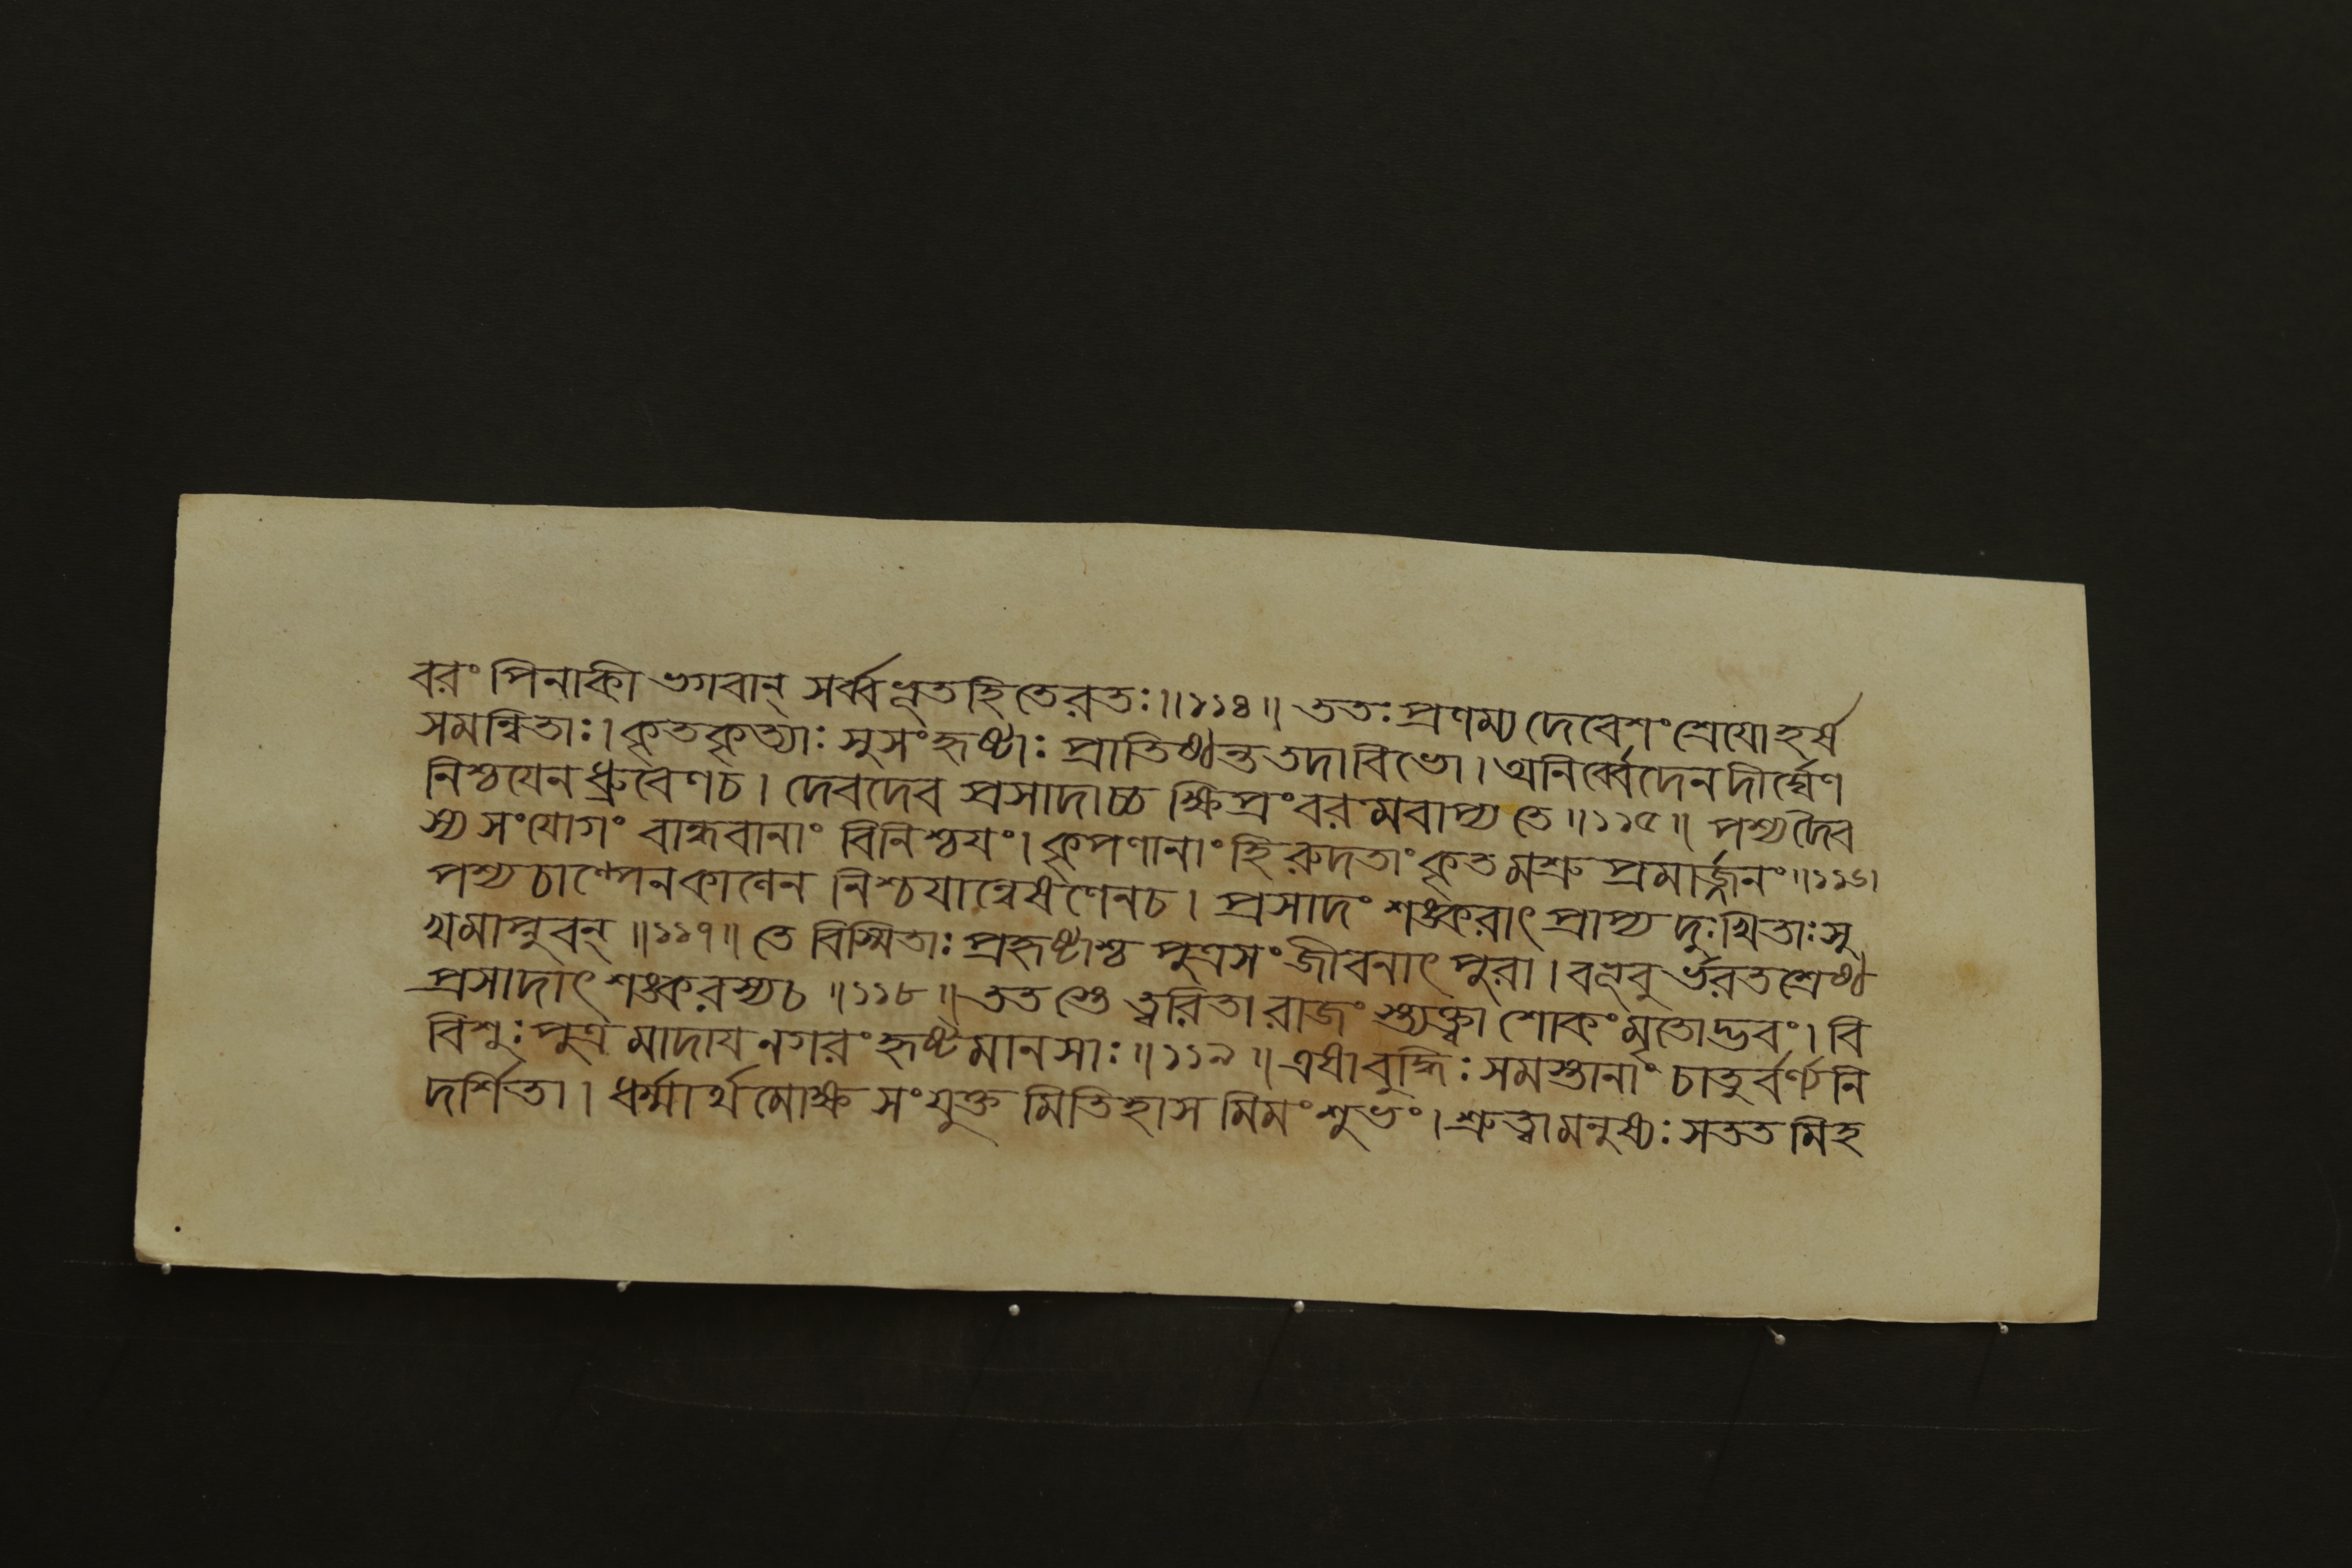 বরং পিনাকী ভগবান্ সর্ব্বভূতহিতেরতঃ॥১১৪॥ ততঃ প্রণম্য দেবেশং শ্রেযোহর্ষ
সমন্বিতাঃ। কৃতকৃত্যাঃ সুসংহৃষ্টাঃ প্রাতিষ্ঠন্ততদাবিভো। অনির্ব্বেদেনদীর্ঘেণ
নিশ্চযেন ধ্রুবেণচ। দেবদেব প্রসাদাচ্চ ক্ষিপ্রংবরমবাপ্যতে॥১১৫॥ পশ্যদৈব
স্য সংযোগং বান্ধবানাং বিনিশ্চযং। কৃপণানাংহি রুদতাংকৃতমশ্রু প্রমার্জ্জনং॥১১৬।
পশ্য চাল্পেনকালেন নিশ্চযান্বেষণেনচ। প্রসাদং শঙ্করাৎ প্রাপ্য দুঃখিতাঃসু
খমাপ্নুবন্॥১১৭॥ তে বিস্মিতাঃ প্রহৃষ্টাশ্চ পুত্রসংজীবনাৎ পুরা। বভূবুর্ভরতশ্রেষ্ঠ
প্রসাদাৎ শঙ্করস্যচ॥১১৮॥ ততস্তে ত্বরিতা রাজংস্ত্যক্ত্বা শোকংমৃতোদ্ভবং। বি
বিশুঃ পুত্রমাদায নগরং হৃষ্টমানসাঃ॥১১৯॥ এষাবুদ্ধিঃ সমস্তানাং চাতুর্বর্ণ্যেনি
দর্শিতা। ধর্ম্মার্থমোক্ষ সংযুক্ত মিতিহাস মিমং শুভং। শ্রুত্বামনুষ্যঃ সততমিহ